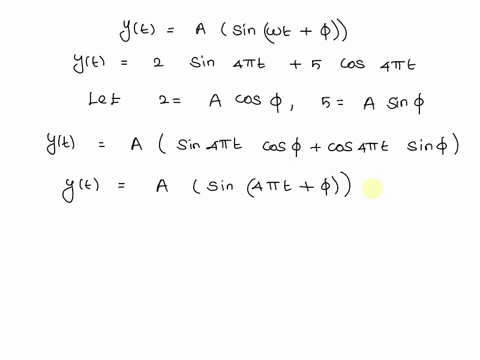 y(t) = A ( sin (ωt + ϕ))
y(t) = 2 sin 4πt + 5 cos 4πt
Let 2 = A cos ϕ , 5 = A sin ϕ
y(t) = A ( sin 4πt cos ϕ + cos 4πt sin ϕ )
y(t) = A ( sin (4πt + ϕ))